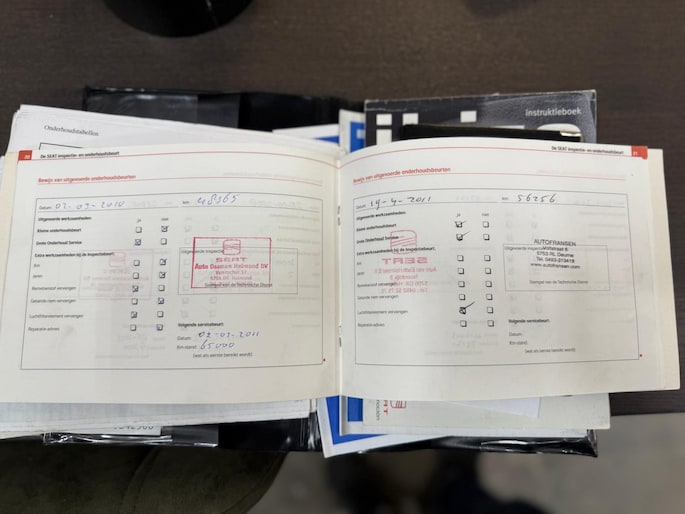 Onderhoudstabellen
instruktieboek
20 De SEAT inspectie- en onderhoudsbeurt
Bewijs van uitgevoerde onderhoudsbeurten
Datum: 02-03-2010 km: 48365
Uitgevoerde werkzaamheden: ja niet
Kleine onderhoudsbeurt
Grote Onderhoud Service
Extra werkzaamheden bij de Inspectiebeurt:
Airi
Jaren
Remvloeistof vervangen
Getande riem vervangen
Luchtfilterelement vervangen
Reparatie advies:
Uitgevoerde inspectie
SEAT
Auto Daamen Helmond BV
Stempel van de Technische Dienst
Volgende servicebeurt:
Datum: 02-03-2011
Km-stand: 65000
(wat als eerste bereikt wordt)
De SEAT inspectie- en onderhoudsbeurt 21
Bewijs van uitgevoerde onderhoudsbeurten
Datum: 19-4-2011 km: 56256
Uitgevoerde werkzaamheden: ja niet
Kleine onderhoudsbeurt
Grote Onderhoud Service
Extra werkzaamheden bij de Inspectiebeurt:
Jaren
Remvloeistof vervangen
Getande riem vervangen
Luchtfilterelement vervangen
Reparatie advies:
Uitgevoerde inspectie
AUTOFRANSEN
5753 RL Deurne
Tel. 0493-313419
www.autofransen.com
Stempel van de Technische Dienst
Volgende servicebeurt:
Datum:
Km-stand:
(wat als eerste bereikt wordt)